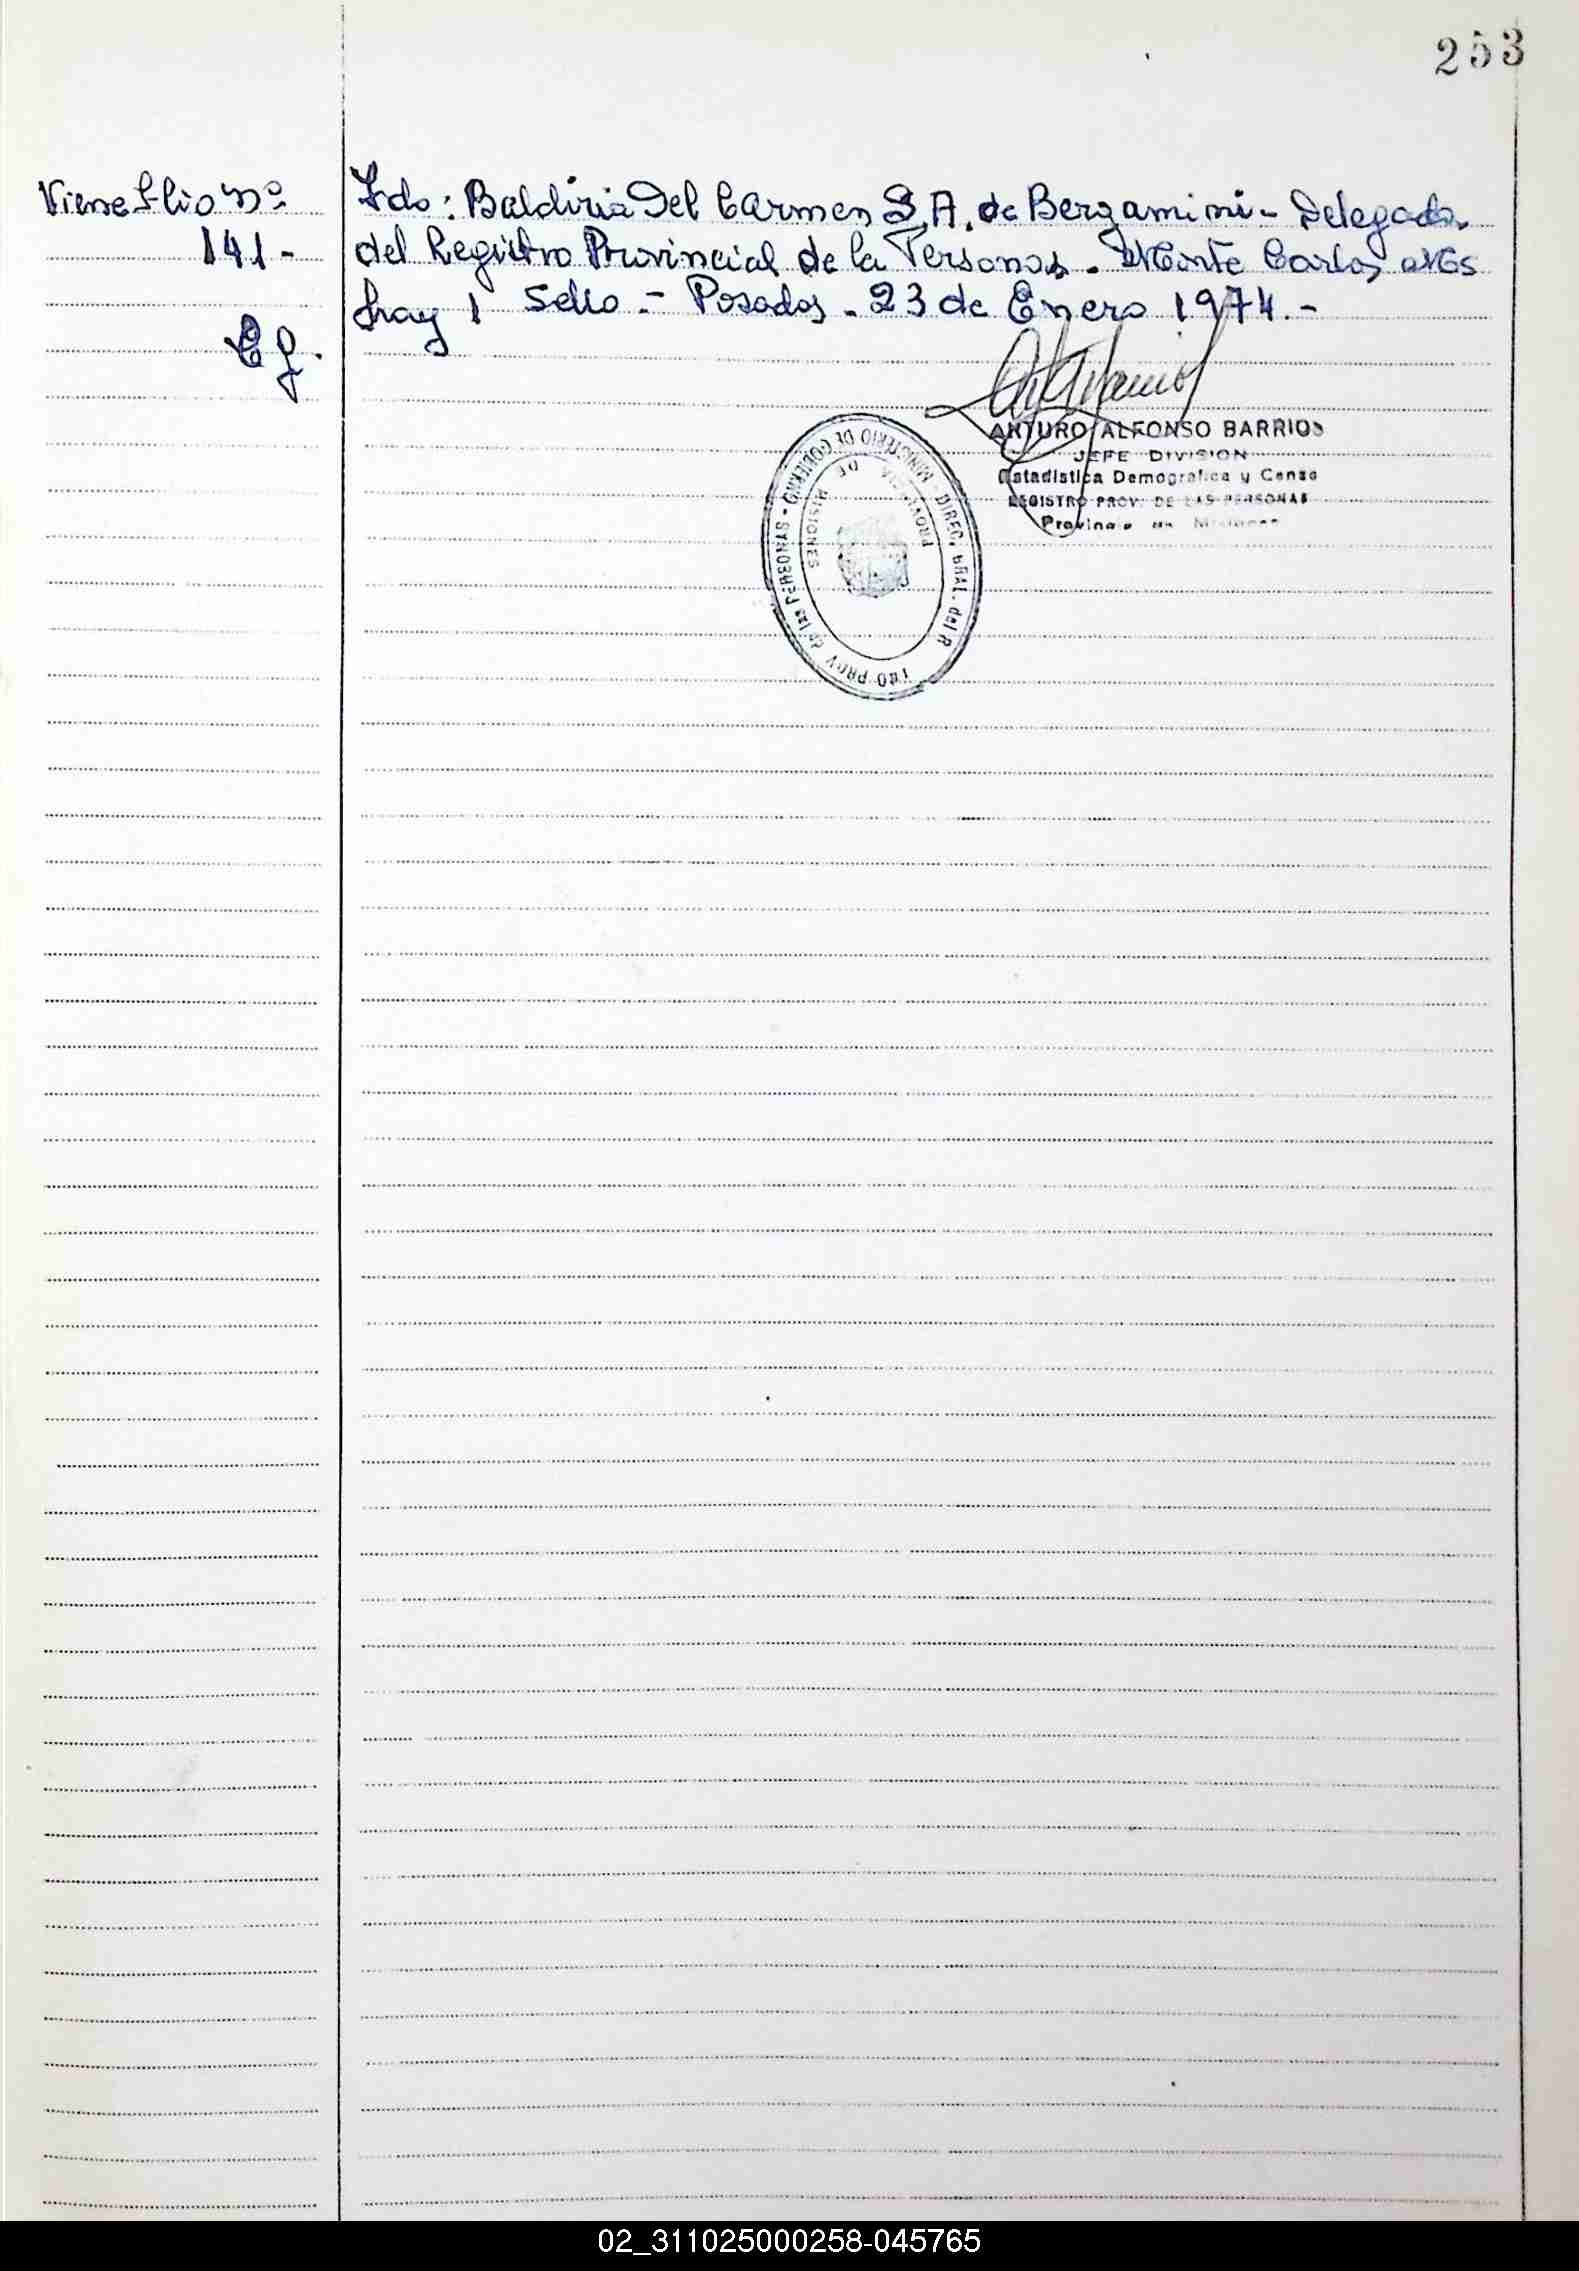 253
Viene Flio Nº
141 -
Fdo: Baldiria Del Carmen S. A. de Bergamini - Delegada.
del Registro Provincial de la Personas. Monte Carlos Mes
hay 1 Sello. - Posadas. 23 de Enero 1974. -
ARTURO ALFONSO BARRIOS
JEFE DIVISION
Estadistica Demografica y Censo
REGISTRO PROV. DE LAS PERSONAS
Provincia de Misiones
MINISTERIO DE GOBIERNO - DIREC. GRAL. del R TRO PROV de las PERSONAS -
PROVINCIA DE MISIONES
02_311025000258-045765